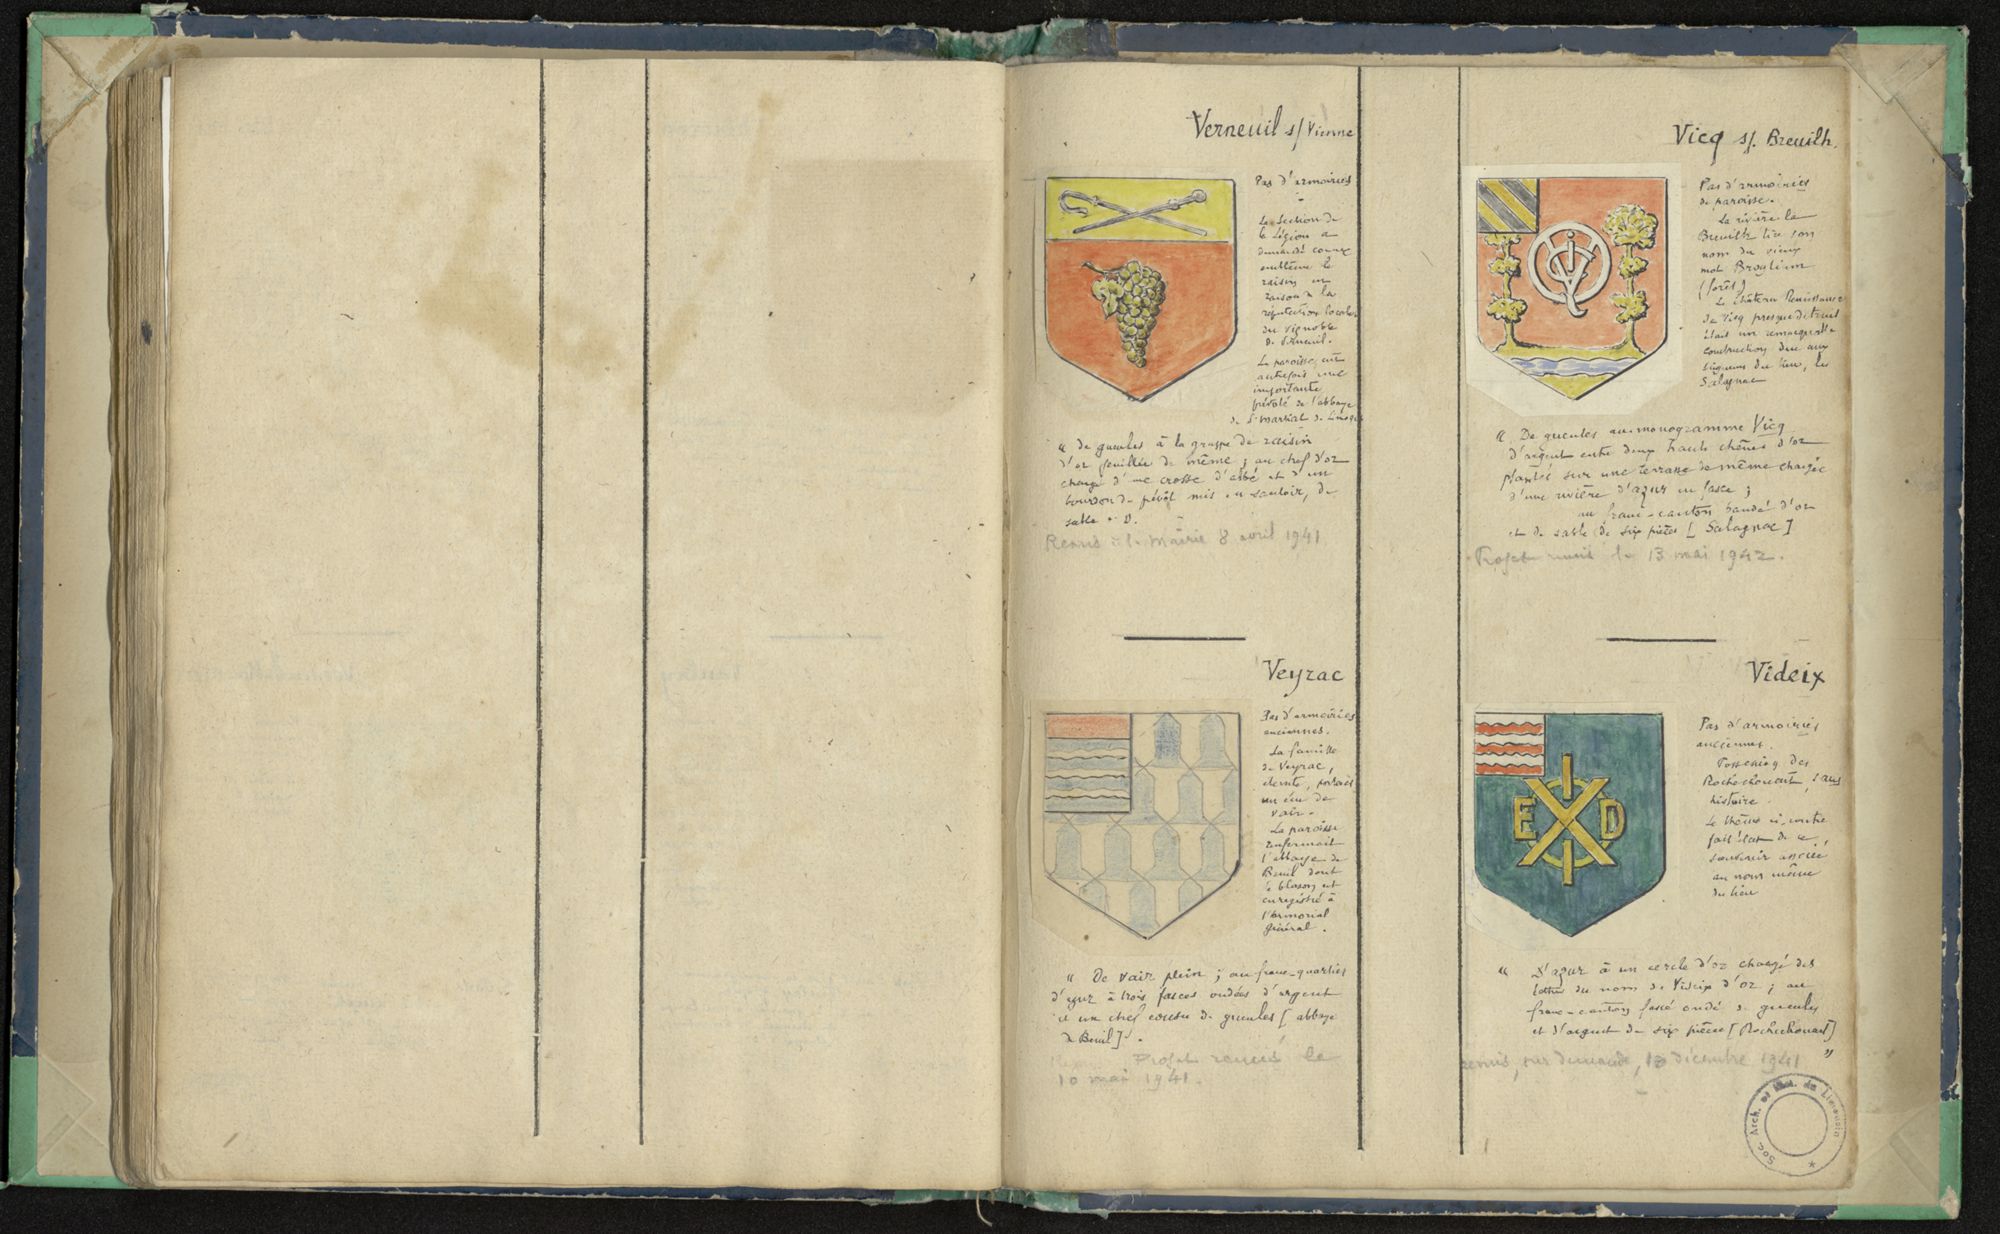 Verneuil s/ Vienne
Pas d'armoiries
La Section de
la Légion a
demandé comme
emblème le
raisin en
raison de la
réputation locale
du vignoble
de Verneuil.
La paroisse était
autrefois une
importante
prévôté de l'abbaye
de St Martial de Limoges
« De gueules à la grappe de raisin
d'or feuillée de même ; au chef d'or
chargé d'une crosse d'abbé et d'un
bourdon de prévôt mis en sautoir, de
sable ».
Remis à la Mairie 8 avril 1941
Veyrac
Pas d'armoiries
anciennes.
La famille
de Veyrac,
éteinte, portait
un écu de
vair.
La paroisse
renfermait
l'abbaye de
Beuil dont
le blason est
enregistré à
l'Armorial
général.
« De vair plein ; au franc-quartier
d'azur à trois fasces ondées d'argent
et un chef cousu de gueules [abbaye
de Beuil] ».
Projet remis le
10 mai 1941.
Vicq s/. Breuilh.
Pas d'armoiries
de paroisse.
La rivière le
Breuilh tire son
nom du vieux
mot Brogilum
(forêt)
Le château Renaissance
de Vicq presque détruit
était une remarquable
construction due aux
seigneurs du lieu, les
Salagnac
« De gueules au monogramme Vicq
d'argent entre deux hauts chênes d'or
plantés sur une terrasse de même chargée
d'une rivière d'azur en fasce ;
au franc-canton bandé d'or
et de sable de six pièces [Salagnac]
Projet remis le 13 mai 1942.
Videix
Pas d'armoiries
anciennes.
Possession des
Rochechouart, sans
histoire.
Le thème ci-contre
fait état de ce
souvenir associé
au nom même
du lieu
E X D
« D'azur à un cercle d'or chargé des
lettres du nom de Videix d'or ; au
franc-canton fascé ondé de gueules
et d'argent de six pièces [Rochechouart]
»
remis, sur demande, 13 décembre 1941
Soc. Arch. et Hist. du Limousin